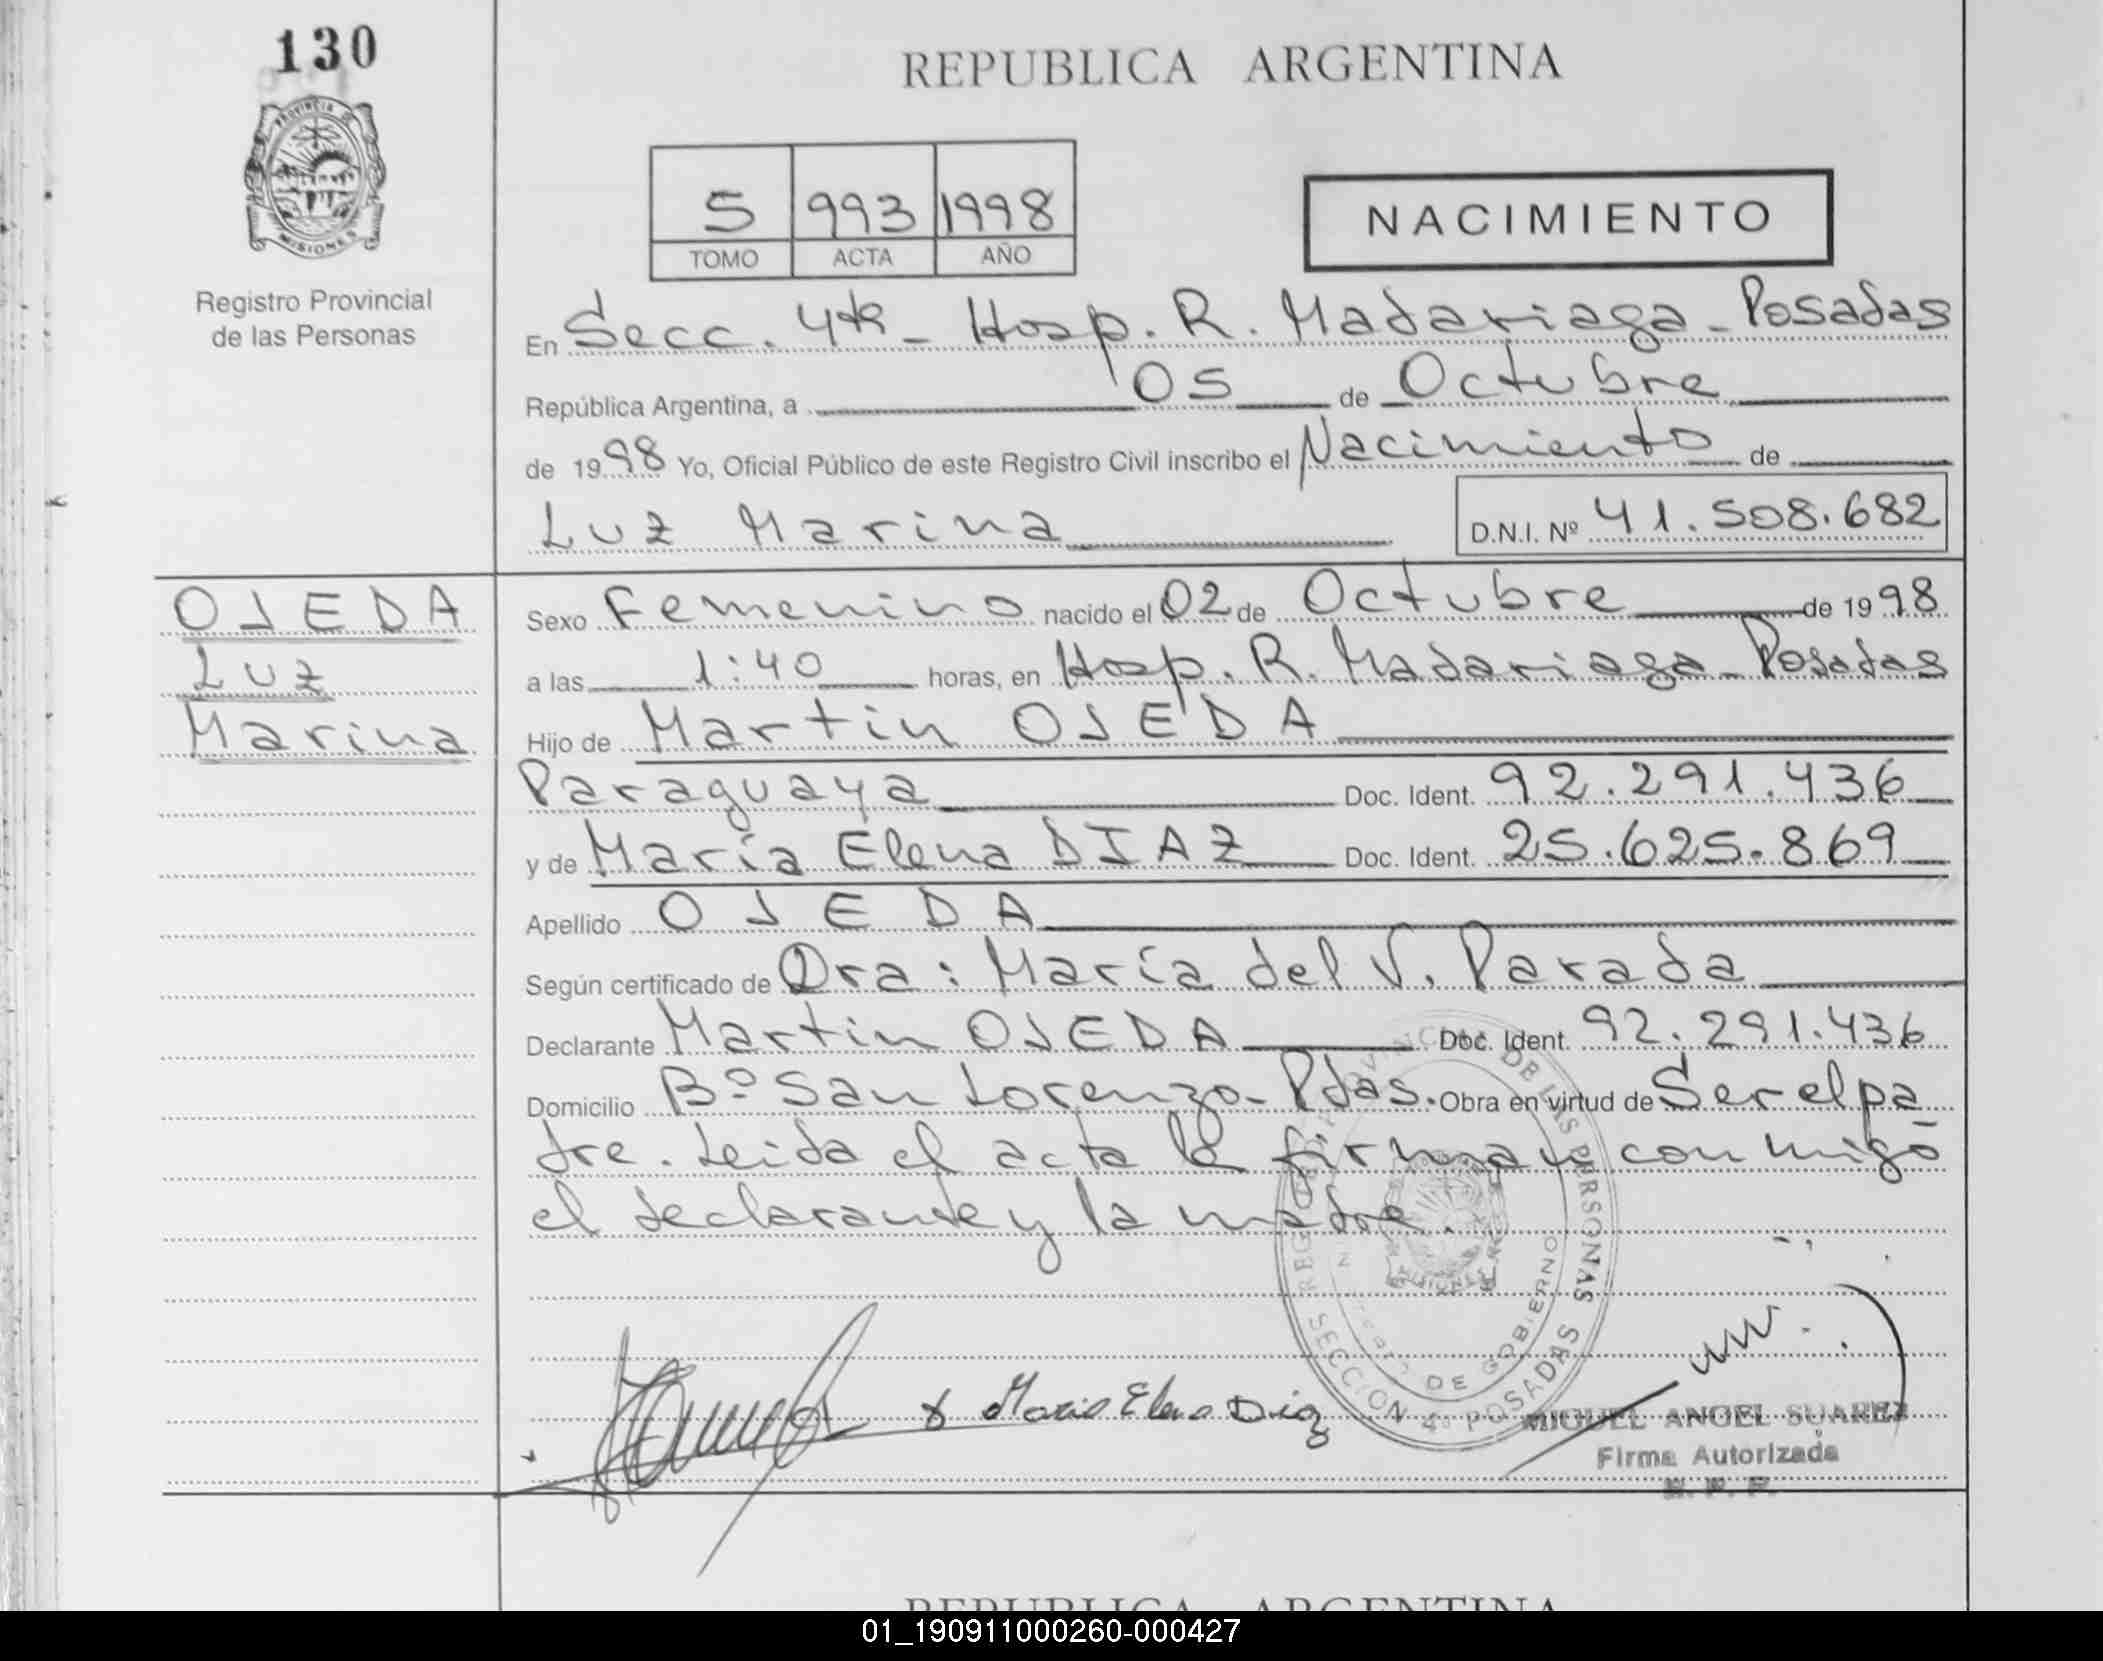 130
PROVINCIA DE
MISIONES
Registro Provincial
de las Personas
REPUBLICA ARGENTINA
5 993 1998
TOMO ACTA AÑO
NACIMIENTO
En Secc. 4ta - Hosp. R. Madariaga - Posadas
República Argentina, a 05 de Octubre
de 1998 Yo, Oficial Público de este Registro Civil inscribo el Nacimiento de
Luz Marina D.N.I. Nº 41.508.682
OJEDA
Luz
Marina
Sexo Femenino nacido el 02 de Octubre de 1998
a las 1:40 horas, en Hosp. R. Madariaga - Posadas
Hijo de Martin OJEDA
Paraguaya Doc. Ident. 92.291.436
y de María Elena DIAZ Doc. Ident. 25.625.869
Apellido OJEDA
Según certificado de Dra: María del V. Parada
Declarante Martin OJEDA Doc. Ident. 92.291.436
Domicilio Bº San Lorenzo - Pdas. Obra en virtud de Ser el pa
dre. Leida el acta la firman conmigo
el declarante y la madre.
DE LAS PERSONAS
DE GOBIERNO
SECCION 4ª POSADAS
MISIONES
x Maria Elena Diaz
MIGUEL ANGEL SUAREZ
Firma Autorizada
R. P. P.
REPUBLICA ARGENTINA
01_190911000260-000427